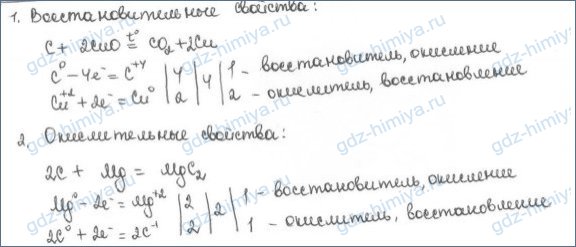 1. Восстановительные свойства:
C + 2CuO t°= CO₂ + 2Cu
C⁰ - 4e⁻ = C⁺⁴ | 4 | 4 | 1 - восстановитель, окисление
Cu⁺² + 2e⁻ = Cu⁰ | 2 | | 2 - окислитель, восстановление
2. Окислительные свойства:
2C + Mg = MgC₂
Mg⁰ - 2e⁻ = Mg⁺² | 2 | 2 | 1 - восстановитель, окисление
2C⁰ + 2e⁻ = 2C⁻¹ | 2 | | 1 - окислитель, восстановление
gdz-himiya.ru